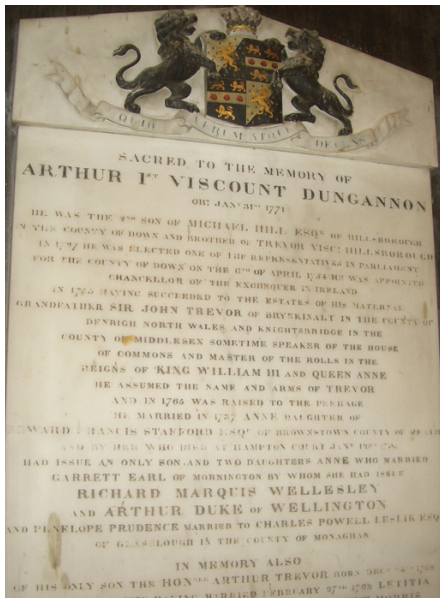 QUID VERUM ATQUE DECENS
SACRED TO THE MEMORY OF
ARTHUR 1ST VISCOUNT DUNGANNON
OB: JANY 31ST 1771
HE WAS THE 2ND SON OF MICHAEL HILL ESQR OF HILLSBOROUGH
IN THE COUNTY OF DOWN AND BROTHER OF TREVOR VISCT HILLSBOROUGH
IN HE WAS ELECTED ONE OF THE REPRESENTATIVES IN PARLIAMENT
FOR THE COUNTY OF DOWN ON THE OF APRIL HE WAS APPOINTED
CHANCELLOR OF THE EXCHEQUER IN IRELAND
IN HAVING SUCCEEDED TO THE ESTATES OF HIS MATERNAL
GRANDFATHER SIR JOHN TREVOR OF BRYNKINALT IN THE COUNTY OF
DENBIGH NORTH WALES AND KNIGHTSBRIDGE IN THE
COUNTY OF MIDDLESEX SOMETIME SPEAKER OF THE HOUSE
OF COMMONS AND MASTER OF THE ROLLS IN THE
REIGNS OF KING WILLIAM III AND QUEEN ANNE
HE ASSUMED THE NAME AND ARMS OF TREVOR
AND IN 1765 WAS RAISED TO THE PEERAGE
HE MARRIED IN 1737 ANNE DAUGHTER OF
EDWARD FRANCIS STAFFORD ESQR OF BROWNSTOWN COUNTY OF
AND BY HER WHO DIED AT HAMPTON COURT JANY
HAD ISSUE AN ONLY SON AND TWO DAUGHTERS ANNE WHO MARRIED
GARRETT EARL OF MORNINGTON BY WHOM SHE HAD ISSUE
RICHARD MARQUIS WELLESLEY
AND ARTHUR DUKE OF WELLINGTON
AND PENELOPE PRUDENCE MARRIED TO CHARLES POWELL LESLIE ESQ
OF GLASSLOUGH IN THE COUNTY OF MONAGHAN
IN MEMORY ALSO
OF HIS ONLY SON THE HONBLE ARTHUR TREVOR BORN
HAVING MARRIED FEBRUARY 27TH 1762 LETITIA
MORRIS